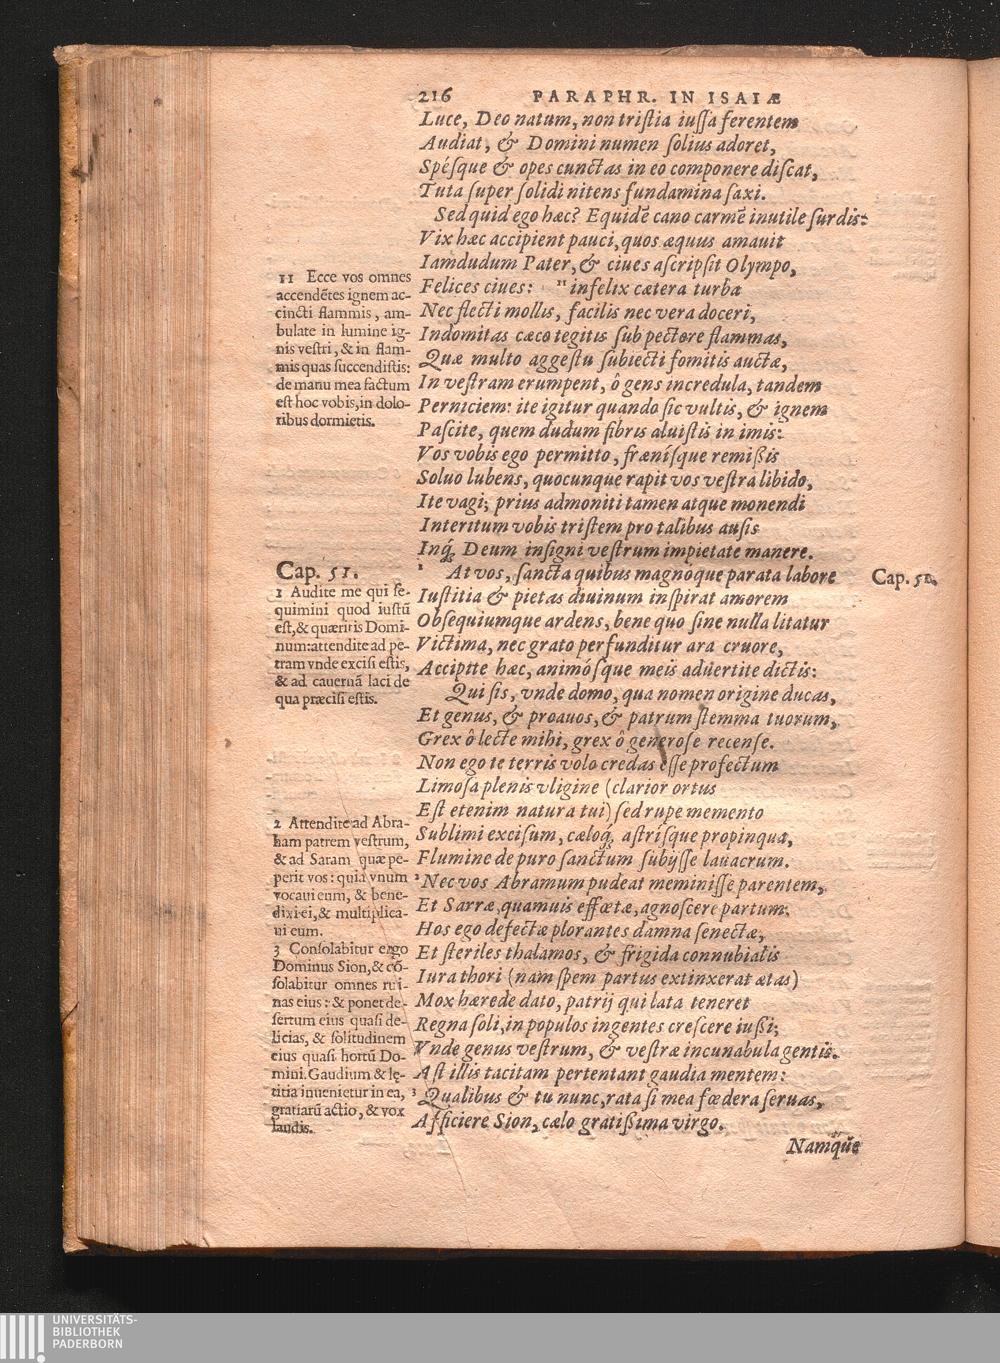 216 PARAPHR. IN ISAIÆ
Luce, Deo natum, non triſtia iuſſa ferentem
Audiat, & Domini numen ſolius adoret,
Spéſque & opes cunctas in eo componere diſcat,
Tuta ſuper ſolidi nitens fundamina ſaxi.
Sed quid ego hæc? Equidē cano carmē inutile ſurdis:
Vix hæc accipient pauci, quos æquus amauit
Iamdudum Pater, & ciues aſcripſit Olympo,
Felices ciues: 11 infelix cætera turba
Nec flecti mollis, facilis nec vera doceri,
Indomitas cæco tegitis ſub pectore flammas,
Quæ multo aggeſtu ſubiecti fomitis auctæ,
In veſtram erumpent, ô gens incredula, tandem
Perniciem: ite igitur quando ſic vultis, & ignem
Paſcite, quem dudum fibris aluiſtis in imis:
Vos vobis ego permitto, fræníſque remißis
Soluo lubens, quocunque rapit vos veſtra libido,
Ite vagi; prius admoniti tamen atque monendi
Interitum vobis triſtem pro talibus auſis
Inq́; Deum inſigni veſtrum impietate manere.
1 At vos, ſancta quibus magnoque parata labore
Iuſtitia & pietas diuinum inſpirat amorem
Obſequiumque ardens, bene quo ſine nulla litatur
Victima, nec grato perfunditur ara cruore,
Accipite hæc, animóſque meis aduertite dictis:
Qui ſis, vnde domo, qua nomen origine ducas,
Et genus, & proauos, & patrum ſtemma tuorum,
Grex ô lecte mihi, grex ô generoſe recenſe.
Non ego te terris volo credas eſſe profectum
Limoſa plenis vligine (clarior ortus
Eſt etenim natura tui) ſed rupe memento
Sublimi exciſum, cæloq́; aſtriſque propinqua,
Flumine de puro ſanctum ſubijſſe lauacrum.
2 Nec vos Abramum pudeat meminiſſe parentem,
Et Sarræ, quamuis effœtæ, agnoſcere partum.
Hos ego defectæ plorantes damna ſenectæ,
Et ſteriles thalamos, & frigida connubialis
Iura thori (nam ſpem partus extinxerat ætas)
Mox hærede dato, patrij qui lata teneret
Regna ſoli, in populos ingentes creſcere iußi;
Vnde genus veſtrum, & veſtræ incunabula gentis.
Aſt illis tacitam pertentant gaudia mentem:
3 Qualibus & tu nunc, rata ſi mea fœdera ſeruas,
Afficiere Sion, cælo gratißima virgo.
Namque
11 Ecce vos omnes
accendētes ignem ac-
cincti flammis, am-
bulate in lumine ig-
nis veſtri, & in flam-
mis quas ſuccendiſtis:
de manu mea factum
eſt hoc vobis, in dolo-
ribus dormietis.
Cap. 51.
1 Audite me qui ſe-
quimini quod iuſtū
eſt, & quæritis Domi-
num: attendite ad pe-
tram vnde exciſi eſtis,
& ad cauernā laci de
qua præciſi eſtis.
2 Attendite ad Abra-
ham patrem veſtrum,
& ad Saram quæ pe-
perit vos: quia vnum
vocaui eum, & bene-
dixi ei, & multiplica-
ui eum.
3 Conſolabitur ergo
Dominus Sion, & cō-
ſolabitur omnes rui-
nas eius: & ponet de-
ſertum eius quaſi de-
licias, & ſolitudinem
eius quaſi hortū Do-
mini. Gaudium & lę-
titia inuenietur in ea,
gratiarū actio, & vox
laudis.
Cap. 51.
UNIVERSITÄTS-
BIBLIOTHEK
PADERBORN